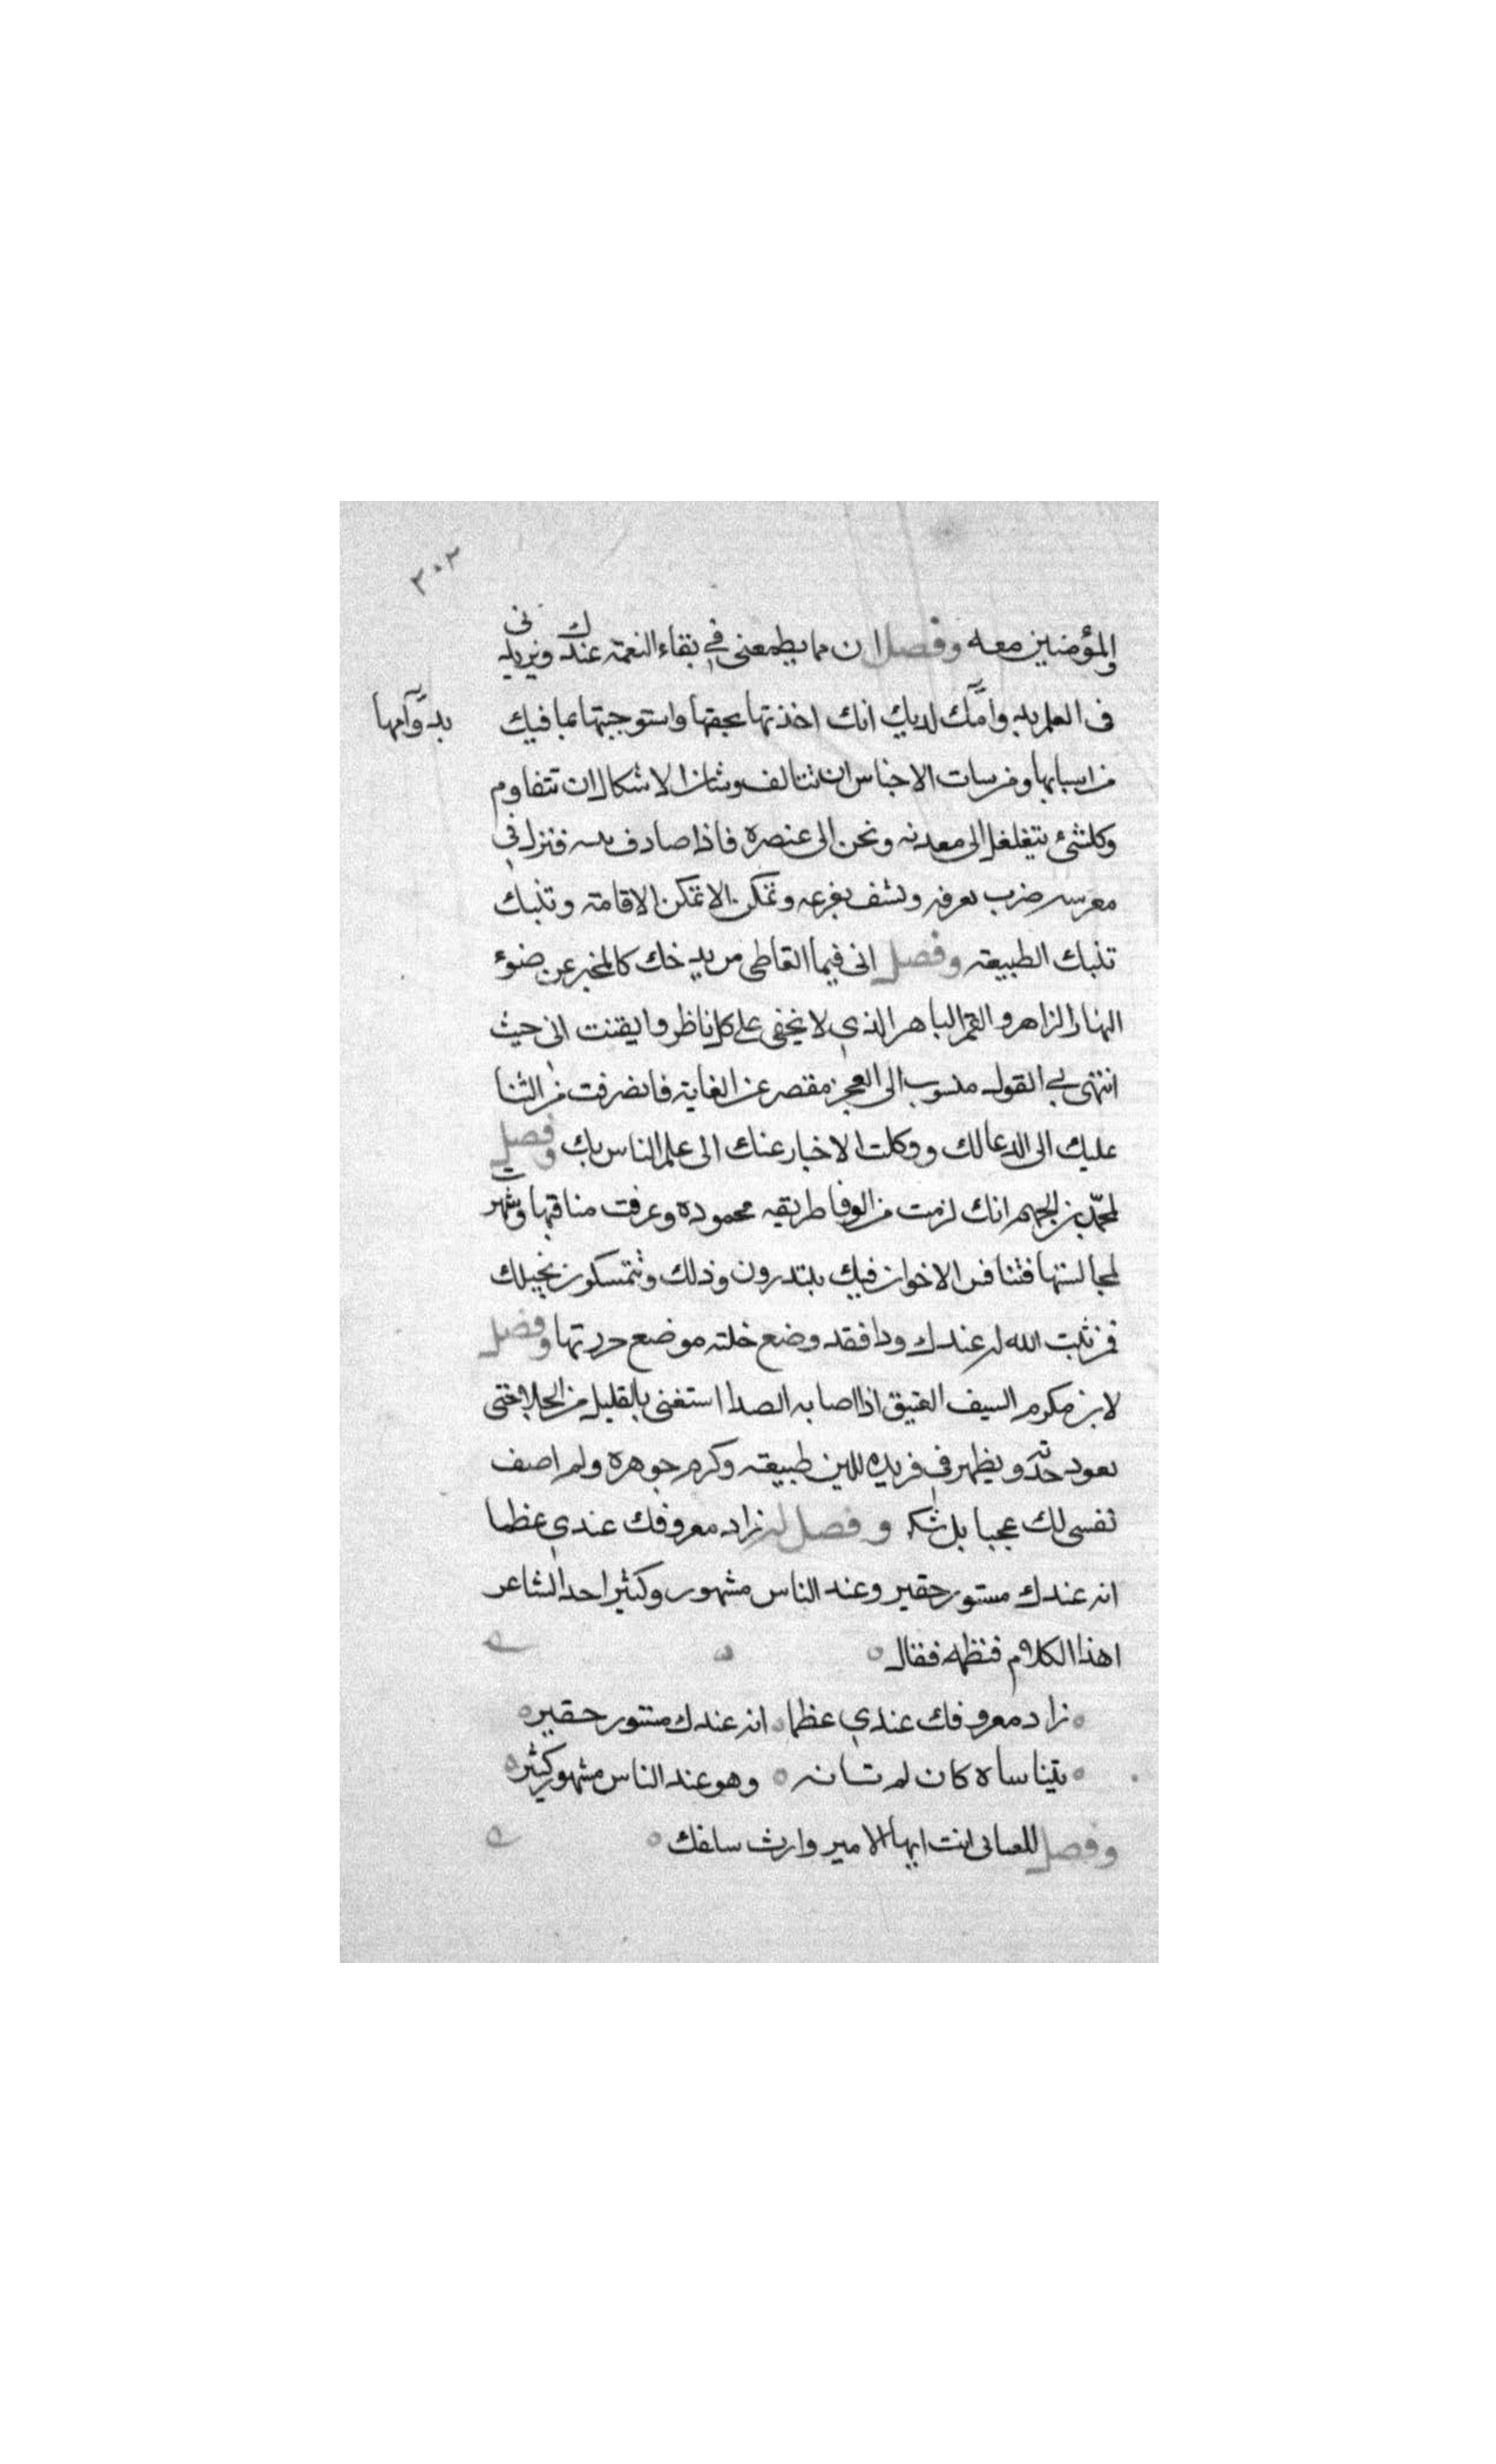 ٣٠٢
والمؤمنين معه وفصل ان مما يطمعنى فى بقاء النعمة عندك ويزيدنى
فى العلم به وامك لديك انك اخذتها بحقها واستوجبتها بما فيك
بدوامها
من اسبابها ومن الاجناس ان تتالف الاشكال ان تتقاوم
وكلشئ يتغلغل الى معدنه ونحن الى عنصره فاذا صادف فنزل فى
مغرسه ضرب بعرفه بفرعه وتمكن الاتمكن الاقامة وتنبك
تنبك الطبيعة وفصل انى فيما اتعاطى من يد خك كالمخبر عن ضوء
النهار الزاهر والقمر الباهر الذى لا يخفى على كل ناظر وايقنت انى حيث
انتهى بى القول منسوب الى العجز مقصر عن الغاية فانصرفت من الثنا
عليك الى الدعا لك ووكلت الاخبار عنك الى علم الناس بك وفصل
لمحمد بن الجهم انك لزمت من الوفا طريقه محموده وعرفت مناقبها وشهرت
لمجالستها فتنافس الاخوان فيك يبتدرون وذلك وتتمسكون بحبلك
فمن ثبت الله له عندك ودا فقد وضع خلته موضع حررتها وفصل
لابن مكرم السيف العتيق اذا اصابه الصدا استغنى بالقليل من الجلا حتى
تعود حدته ويظهر فى فرنده للين طبيعته وكرم جوهره ولم اصف
نفسى لك عجبا بل شكر وفصل له زاد معروفك عندى عظما
انه عندك مستور حقير وعند الناس مشهور وكثير اخذ الشاعر
هذا الكلام فنظمه فقال
زاد معروفك عندى عظما انه عندك مستور حقير
يتناساه كان لم تاته وهو عند الناس مشهور كثير
وفصل للعتابى انت ايها الامير وارث سلفك